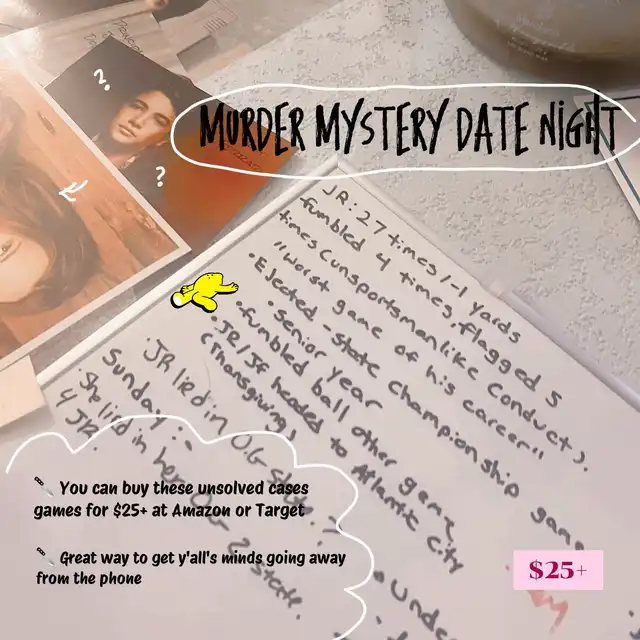 MURDER MYSTERY DATE NIGHT
?
?
JR: 27 times/-1 yards
fumbled 4 times, flagged 5
times (unsportsmanlike conduct).
"worst game of his career"
• Ejected - state championship game
• senior year
• fumbled ball other game
• JR/JF headed to Atlantic City
(Thanksgiving)
• JR lied in O.G state.
Sunday
• She lied in her
4 JR.
2 state.
• Unde
You can buy these unsolved cases
games for $25+ at Amazon or Target
Great way to get y'all's minds going away
from the phone
$25+